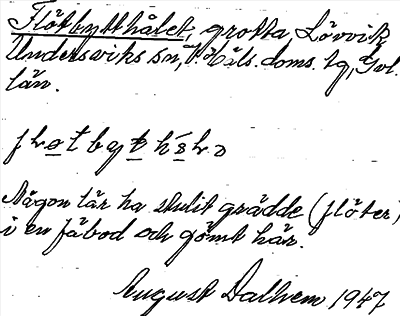 Flötbytthålet, grotta, Lövvik
Undersviks sn, N. Häls. doms. tg, Gvl.
län.
Någon lär ha stulit grädde (flöter)
i en fäbod och gömt här.
August Dalhem 1947